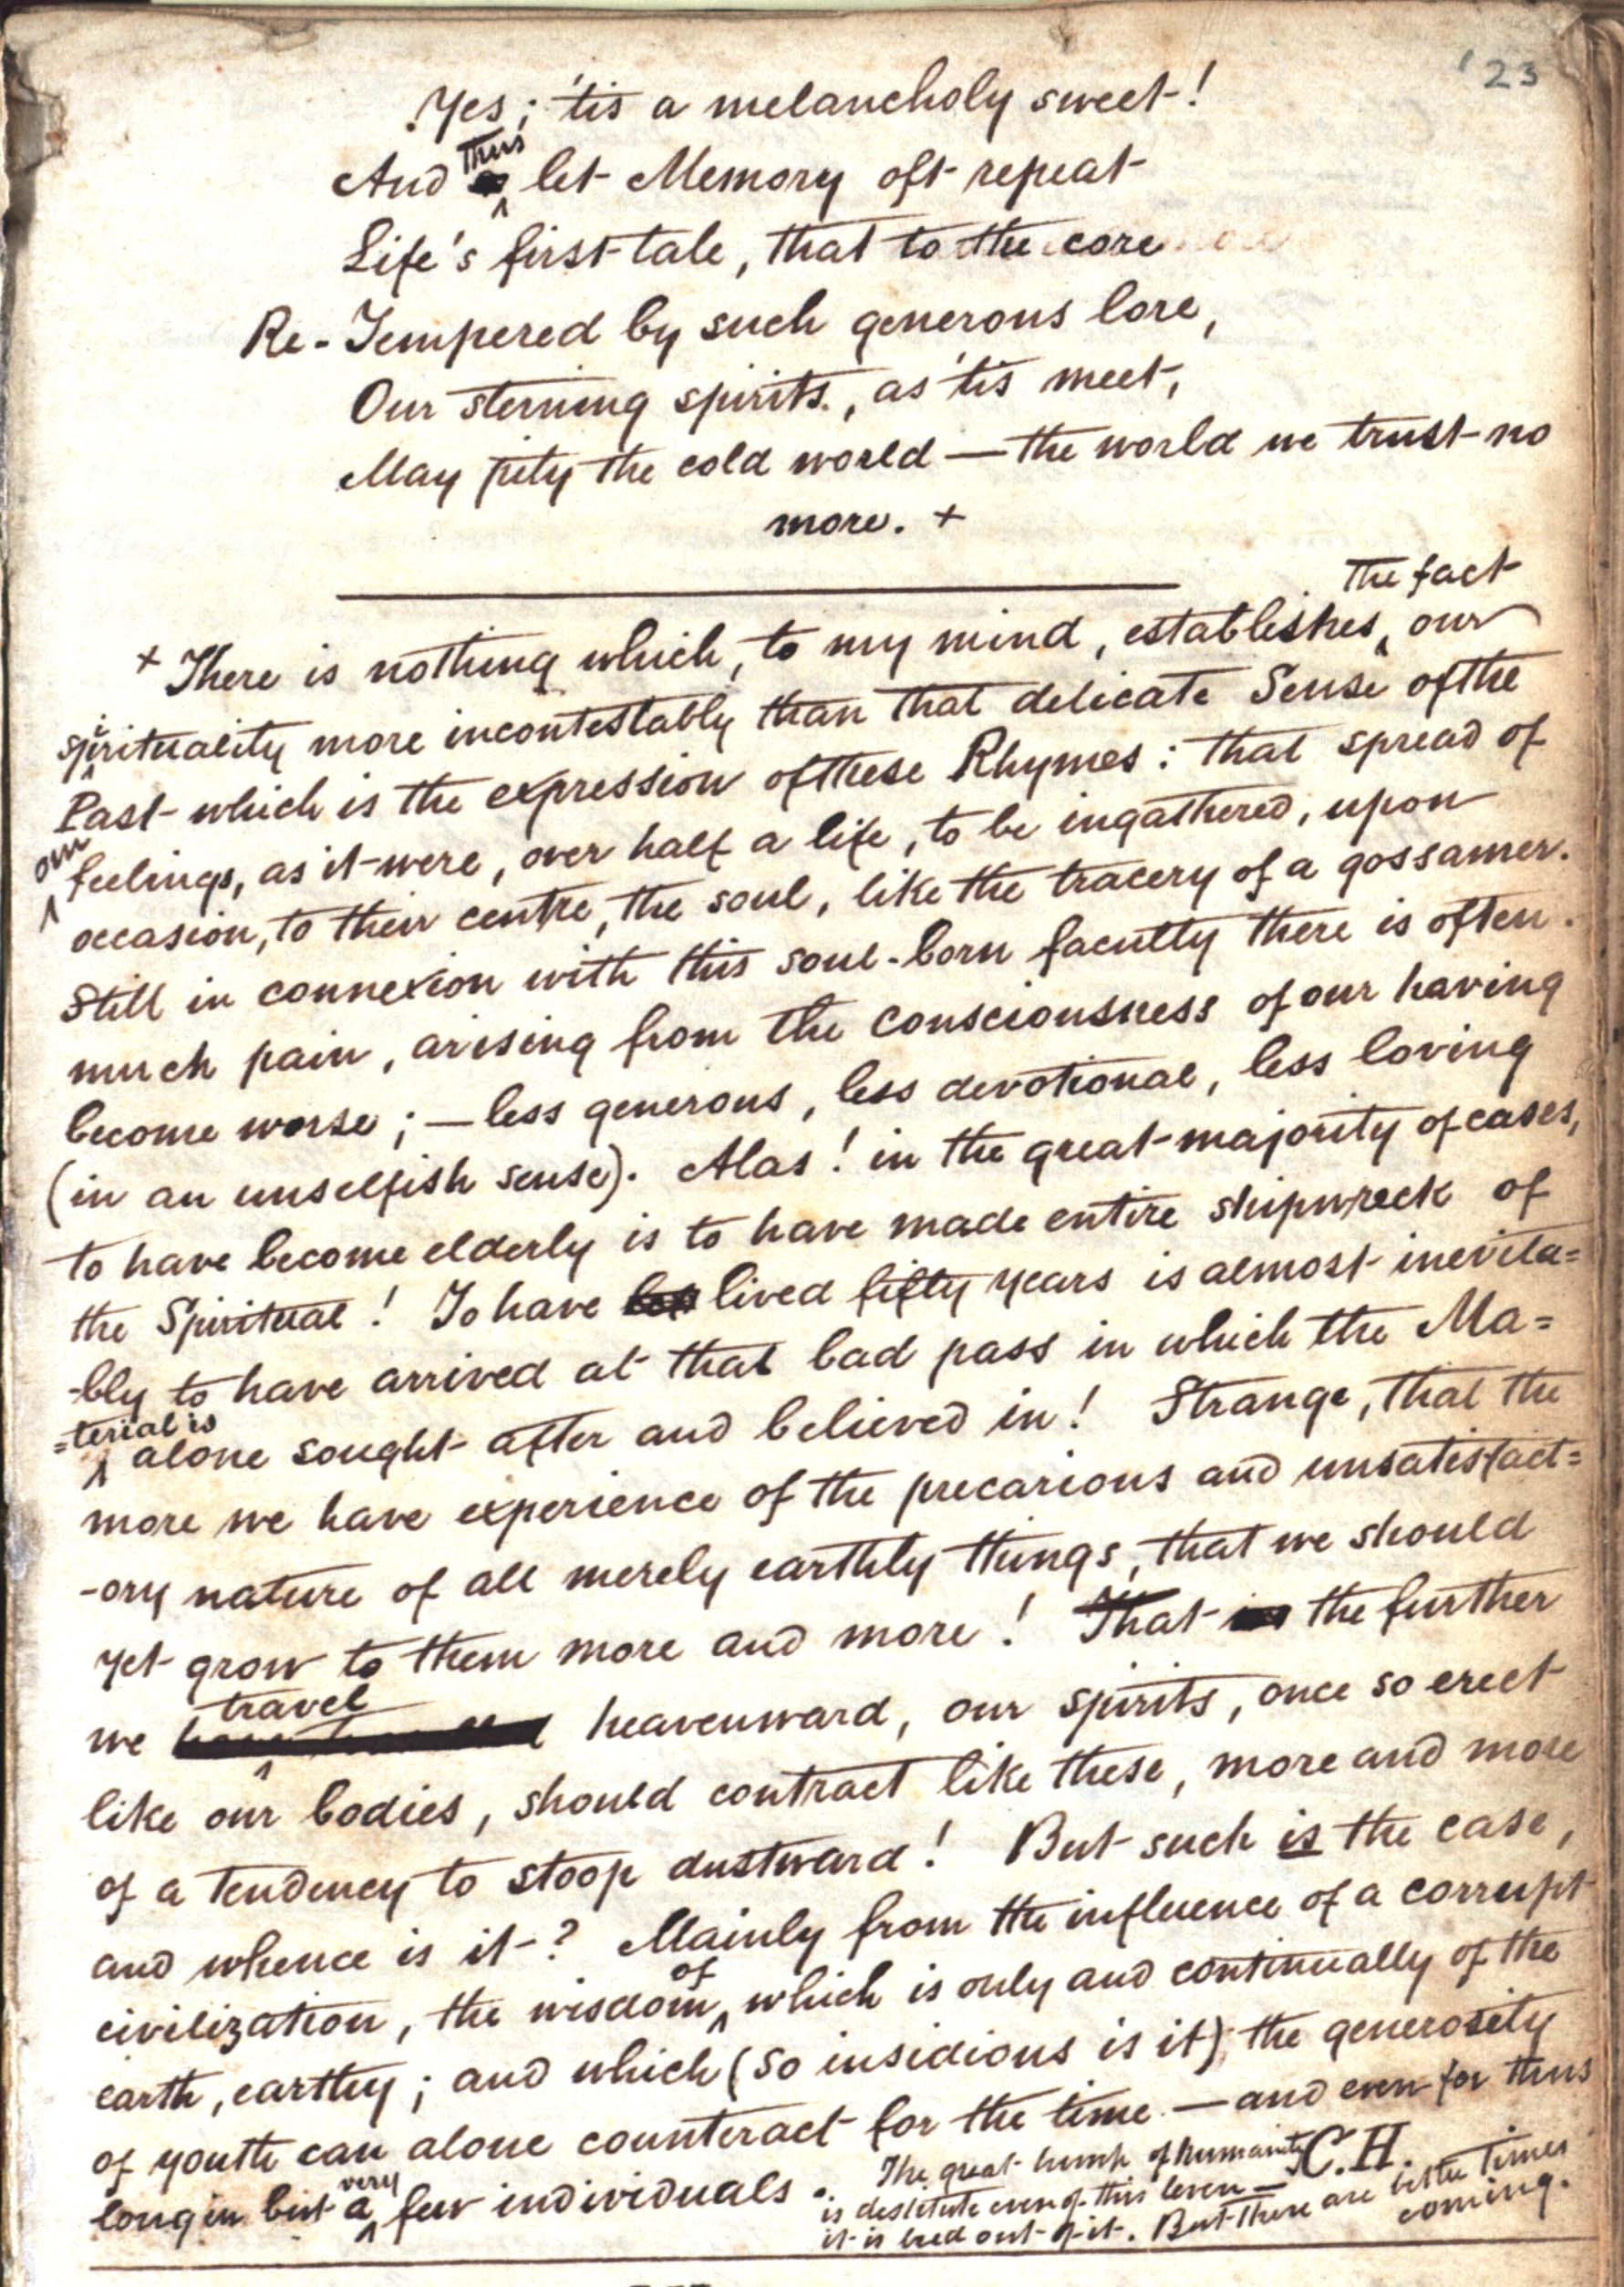 '23
Yes; 'tis a melancholy sweet!
And thus let Memory oft repeat
Life's first tale, that to the core
Re-Tempered by such generous lore,
Our sterning spirits, as 'tis meet,
May pity the cold world — the world we trust no
more. +
+ There is nothing which, to my mind, establishes the fact our
spirituality more incontestably than that delicate Sense of the
Past which is the expression of these Rhymes: that spread of
our feelings, as it were, over half a life, to be ingathered, upon
occasion, to their centre, the soul, like the tracery of a gossamer.
Still in connexion with this soul-born faculty there is often
much pain, arising from the consciousness of our having
become worse; — less generous, less devotional, less loving
(in an unselfish sense). Alas! in the great majority of cases,
to have become elderly is to have made entire shipwreck of
the Spiritual! To have lived fifty years is almost inevita=
-bly to have arrived at that bad pass in which the Ma=
=terial is alone sought after and believed in! Strange, that the
more we have experience of the precarious and unsatisfact=
-ory nature of all merely earthly things, that we should
yet grow to them more and more! That the further
we travel heavenward, our spirits, once so erect
like our bodies, should contract like these, more and more
of a tendency to stoop dustward! But such is the case,
and whence is it? Mainly from the influence of a corrupt
civilization, the wisdom of which is only and continually of the
earth, earthy; and which (so insidious is it) the generosity
of youth can alone counteract for the time — and even for thus
long in but a very few individuals. The great lump of humanity
is destitute even of this leven —
it is bred out of it. But there are better times
coming.
C.H.